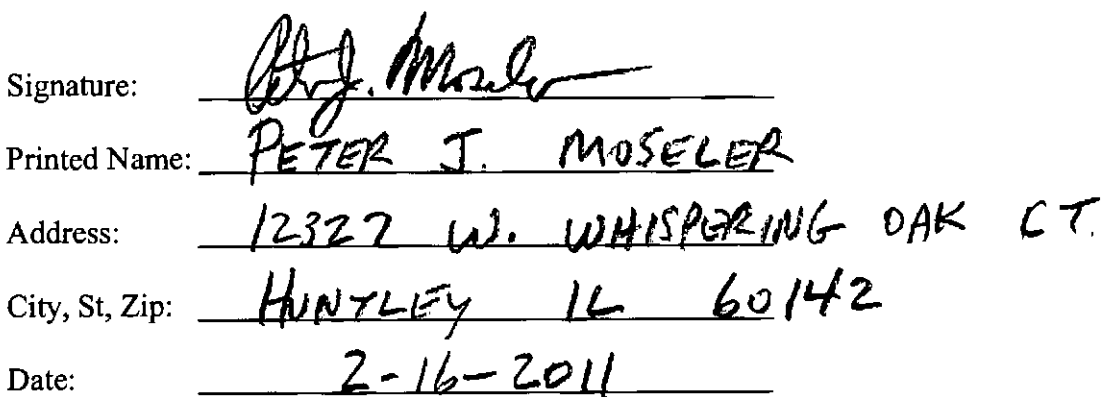 Signature: Peter J. Moseler
Printed Name: PETER J. MOSELER
Address: 12327 W. WHISPERING OAK CT.
City, St, Zip: HUNTLEY IL 60142
Date: 2-16-2011